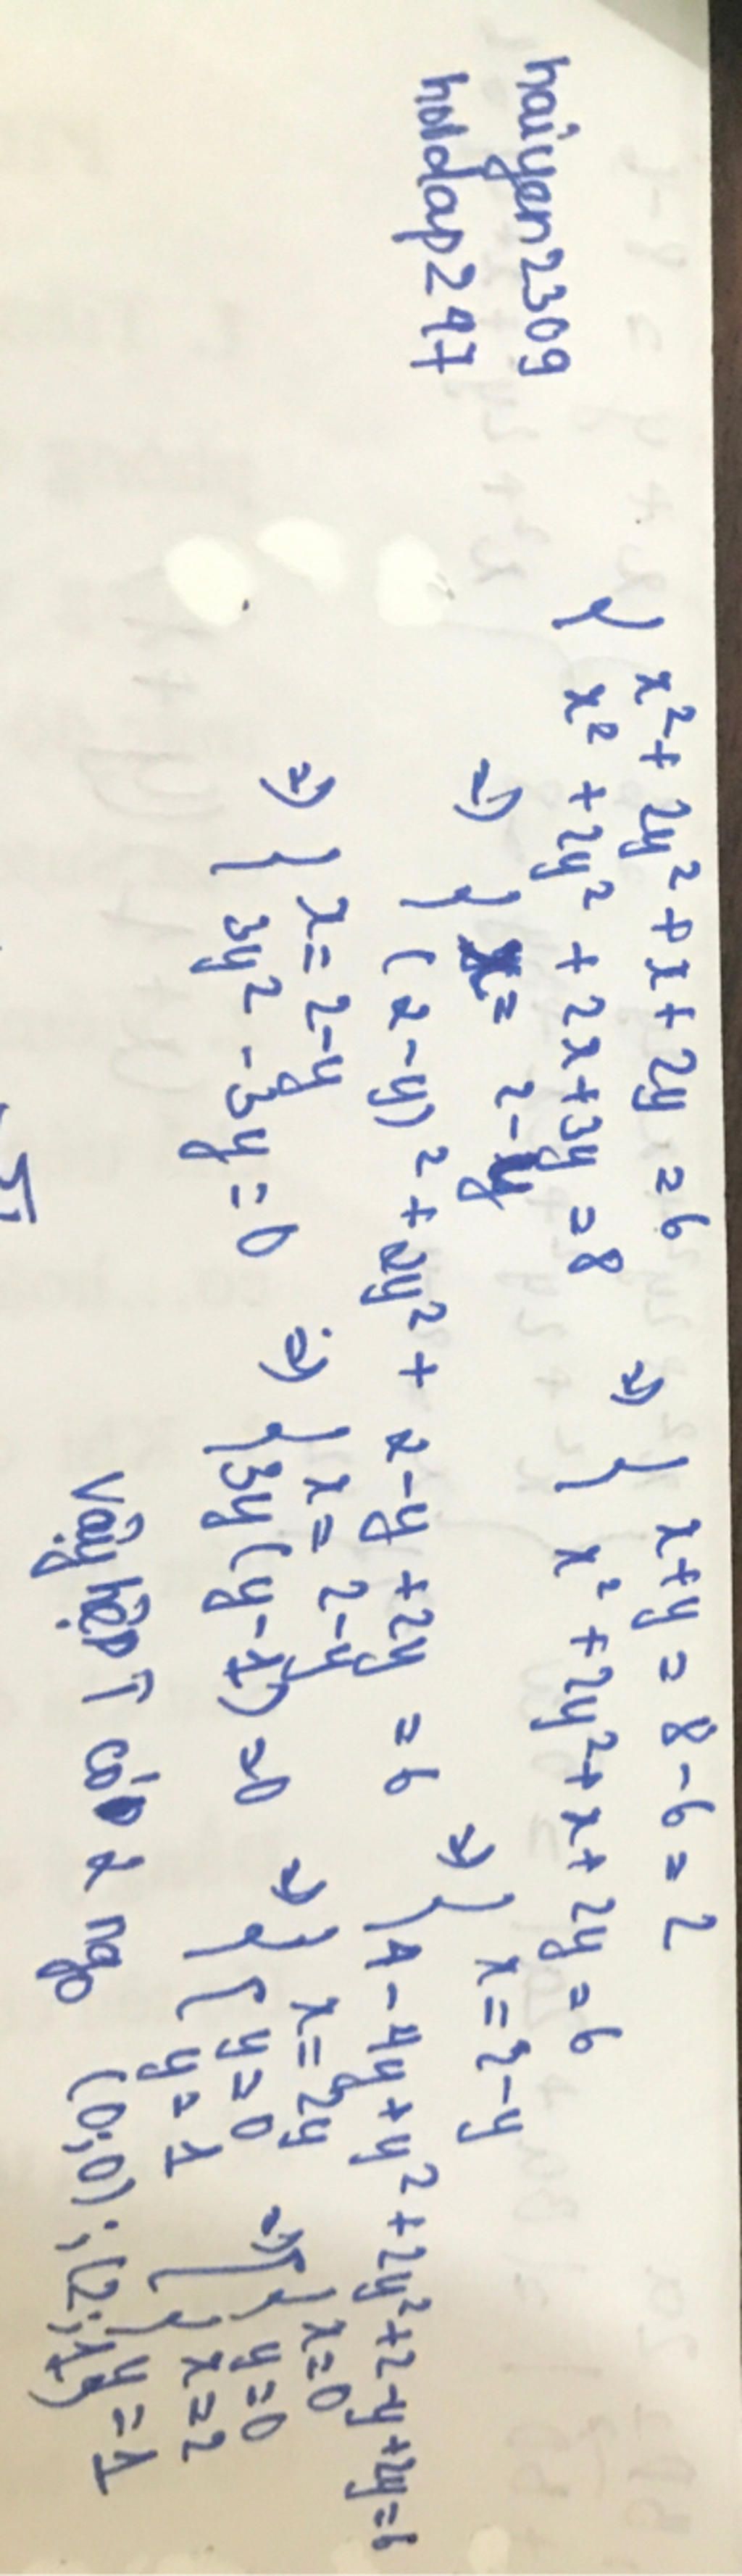 haiyen2309
hoidap247
{ x² + 2y² + x + 2y = 6
x² + 2y² + 2x + 3y = 8
=> { x + y = 8 - 6 = 2
x² + 2y² + x + 2y = 6
=> { x = 2 - y
(2 - y)² + 2y² + 2 - y + 2y = 6
=> { x = 2 - y
4 - 4y + y² + 2y² + 2 - y + 2y = 6
=> { x = 2 - y
3y² - 3y = 0
=> { x = 2 - y
3y(y - 1) = 0
=> { x = 2y
[ y = 0
y = 1
=> [ { x = 0
y = 0
{ x = 2
y = 1
Vậy hệ pT có 2 ngo (0;0); (2;1)